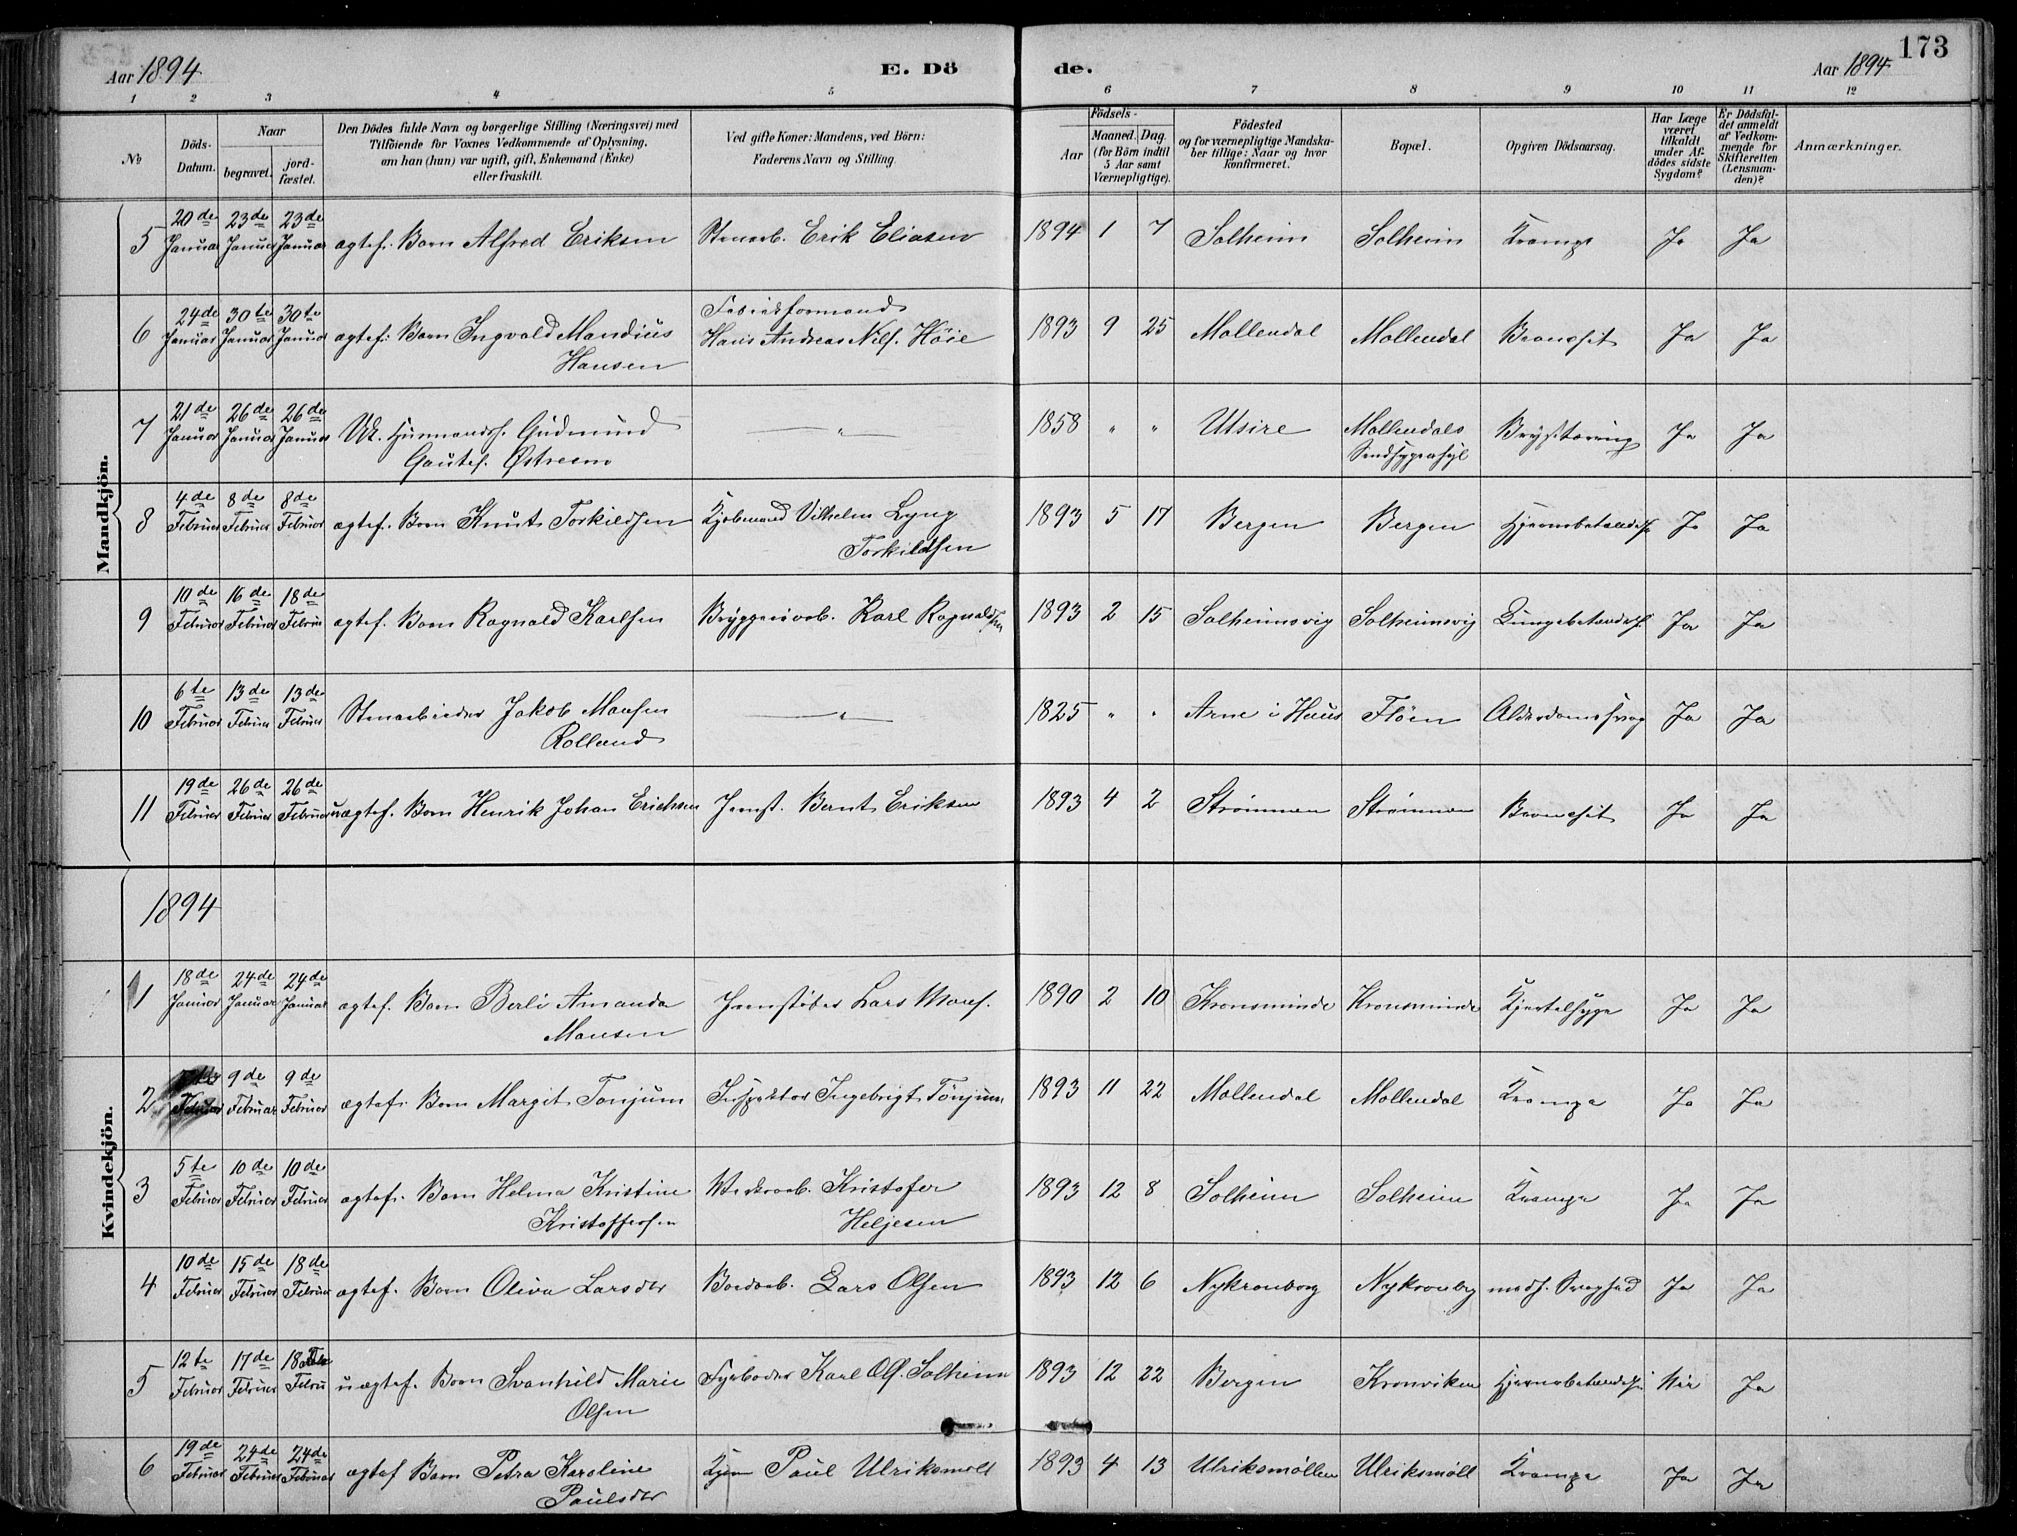 173
Aar 1894
E. Dö
de.
Aar 1894
1 2 3 4 5 6 7 8 9 10 11 12
№
Döds-
Datum.
Naar
begravet.
jord-
fæstet.
Den Dödes fulde Navn og borgerlige Stilling (Næringsvei) med
Tilföiende for Voxnes Vedkommende af Oplysning,
om han (hun) var ugift, gift, Enkemand (Enke)
eller fraskilt.
Ved gifte Koner: Mandens, ved Börn:
Faderens Navn og Stilling.
Födsels-
Aar
Maaned. Dag.
(for Börn indtil
5 Aar samt
Værnepligtige).
Födested
og for værnepligtige Mandska-
ber tillige: Naar og hvor
konfirmeret.
Bopæl.
Opgiven Dödsaarsag.
Har Læge
været
tilkaldt
under Af-
dödes sidste
Sygdom?
Er Dödsfal-
det anmeldt
af Vedkom-
mende for
Skifteretten
(Lensman-
den)?
Anmærkninger.
Mandkjön.
5 20de Januar 23de Januar 23de Januar ægtef. Barn Alfred Eriksen Stenarb. Erik Eliasen 1894 1 7 Solheim Solheim Krampe Ja Ja
6 24de Januar 30te Januar 30te Januar ægtef. Barn Ingvald Mandius
Hansen
Fabrikformand
Hans Andreas Nils. Höie 1893 9 25 Møllendal Møllendal Bronchit Ja Ja
7 21de Januar 26de Januar 26de Januar Uk. Husmandss. Gudmund
Gautes. Østreem
— " — 1858 " " Utsire Møllendals
Sindssygeasyl
Brysttæring Ja Ja
8 4de Februar 8de Februar 8de Februar ægtef. Barn Knut Torkildsen Kjøbmand Vilhelm Lyng
Torkildsen
1893 5 17 Bergen Bergen Hjernebetændelse Ja Ja
9 10de Februar 16de Februar 18de Februar ægtef. Barn Ragnald Karlsen Bryggeriarb. Karl Ragnaldsen 1893 2 15 Solheimsvig Solheimsvig Lungebetændels. Ja Ja
10 6te Februar 13de Februar 13de Februar Stenarbeider Jakob Monsen
Rolland
— " — 1825 " " Arne i Haus Fløen Alderdomssvag Ja Ja
11 19de Februar 26de Februar 26de Februar uægtef. Barn Henrik Johan Erichsen Jernst. Bernt Eriksen 1893 4 2 Strømmen Strømmen Bronchit Ja Ja
1894
Kvindekjön.
1 18de Januar 24de Januar 24de Januar ægtef. Barn Berli Amanda
Monsen
Jernstøber Lars Mons. 1890 2 10 Kronsminde Kronsminde Kjertelsyge Ja Ja
2 Februar 9de Februar 9de Februar ægtef. Barn Margit Tonjum Inspektør Ingebrigt Tönjum 1893 11 22 Møllendal Møllendal Krampe Ja Ja
3 5te Februar 10de Februar 10de Februar ægtef. Barn Helma Kristine
Kristoffersen
Værksarb. Kristofer
Heljesen
1893 12 8 Solheim Solheim Krampe Ja Ja
4 10de Februar 15de Februar 18de Februar ægtef. Barn Oliva Larsdtr Bordarb. Lars Olsen 1893 12 6 Nykronborg Nykronborg medf. Svaghed Ja Ja
5 12te Februar 17de Februar 18de Febru uægtef. Barn Svanhild Marie
Olsen
Fyrbøder Karl Ols. Solheim 1893 12 22 Bergen Kronviken Hjernebetændels. Nei Ja
6 19de Februar 24de Februar 24de Februar ægtef Barn Petra Karoline
Paulsdtr
Paul Ulriksmøll 1893 4 13 Ulriksmøllen Ulriksmøll Krampe Ja Ja